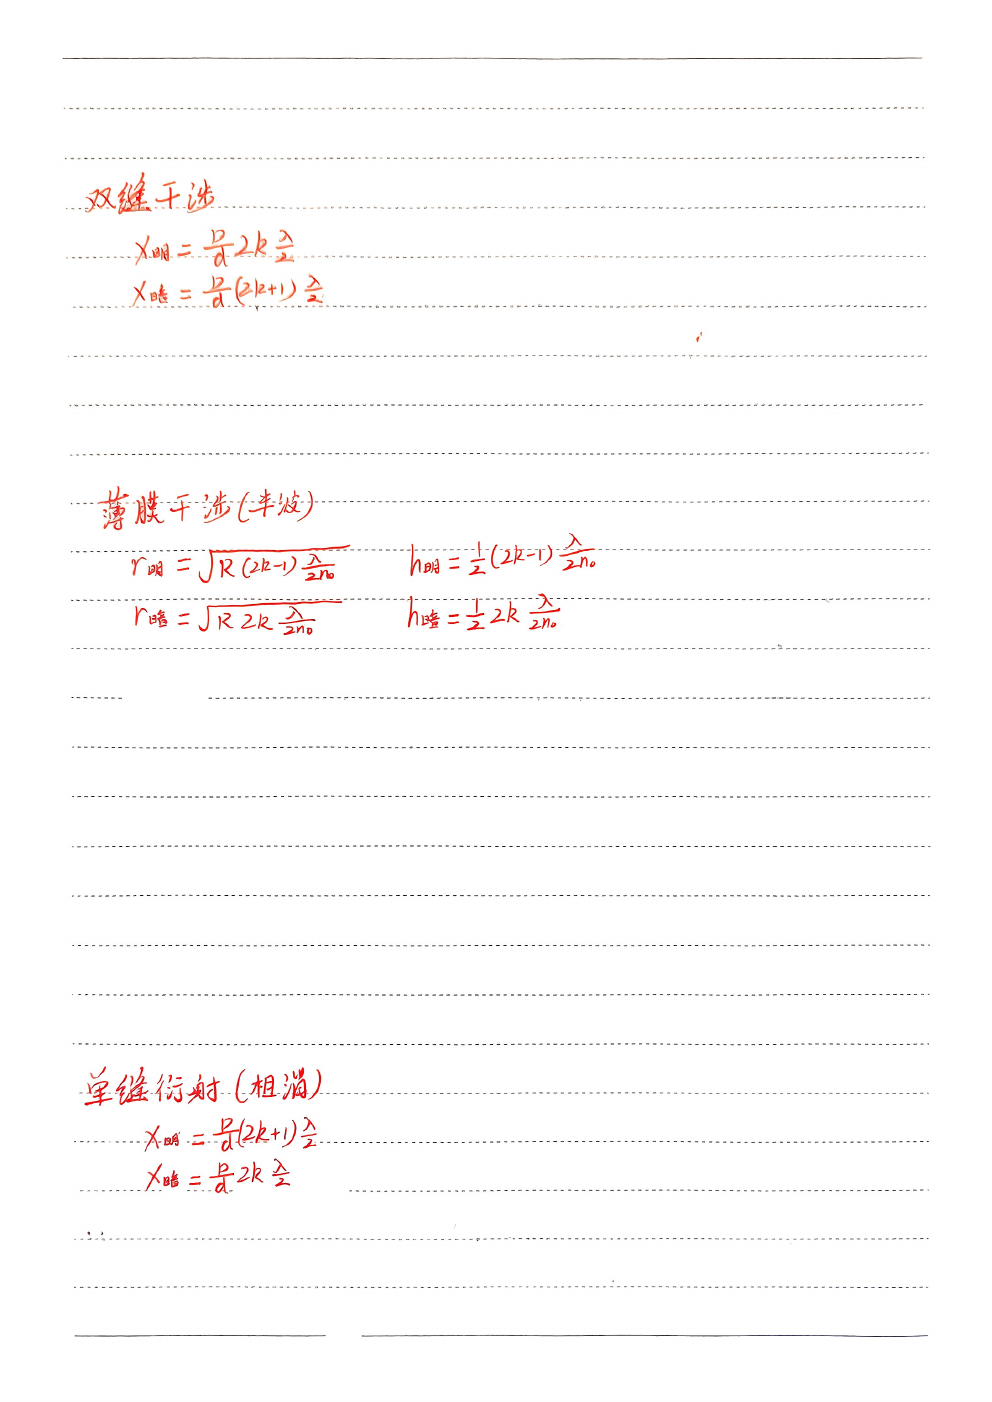 双缝干涉
x明 = D/d 2k λ/2
x暗 = D/d (2k+1) λ/2
薄膜干涉(半波)
r明 = √(R(2k-1) λ/2n₀) h明 = 1/2 (2k-1) λ/2n₀
r暗 = √(R 2k λ/2n₀) h暗 = 1/2 2k λ/2n₀
单缝衍射(相消)
x明 = D/d (2k+1) λ/2
x暗 = D/d 2k λ/2